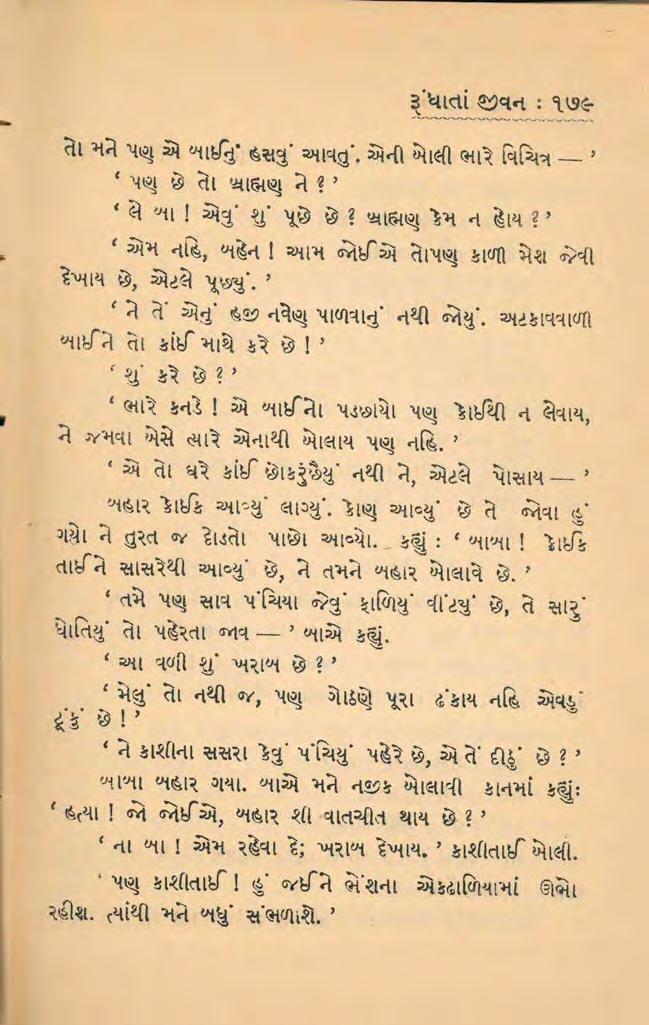 રૂંધાતાં જીવન : ૧૭૯
તો મને પણ એ બાઈનું હસવું આવતું. એની બોલી ભારે વિચિત્ર — ’
‘ પણ છે તો બ્રાહ્મણ ને ? ’
‘ લે બા ! એવું શું પૂછે છે ? બ્રાહ્મણ કેમ ન હોય ? ’
‘ એમ નહિ, બહેન ! આમ જોઈએ તોપણ કાળી મેશ જેવી
દેખાય છે, એટલે પૂછ્યું. ’
‘ ને તેં એનું હજી નવેણ પાળવાનું નથી જોયું. અટકાવવાળી
બાઈને તો કાંઈ માથે કરે છે ! ’
‘ શું કરે છે ? ’
‘ ભારે કનડે ! એ બાઈનો પડછાયો પણ કોઈથી ન લેવાય,
ને જમવા બેસે ત્યારે એનાથી બોલાય પણ નહિ. ’
‘ એ તો ઘરે કાંઈ છોકરુંછૈયું નથી ને, એટલે પોસાય — ’
બહાર કોઈક આવ્યું લાગ્યું. કોણ આવ્યું છે તે જોવા હું
ગયો ને તુરત જ દોડતો પાછો આવ્યો. કહ્યું : ‘ બાબા ! કોઈક
તાઈને સાસરેથી આવ્યું છે, ને તમને બહાર બોલાવે છે. ’
‘ તમે પણ સાવ પંચિયા જેવું ફાળિયું વીંટયું છે, તે સારું
ધોતિયું તો પહેરતા જાવ — ’ બાએ કહ્યું.
‘ આ વળી શું ખરાબ છે ? ’
‘ મેલું તો નથી જ, પણ ગોઠણે પૂરા ઢંકાય નહિ એવડું
ટૂંકું છે ! ’
‘ ને કાશીના સસરા કેવું પંચિયું પહેરે છે, એ તેં દીઠું છે ? ’
બાબા બહાર ગયા. બાએ મને નજીક બોલાવી કાનમાં કહ્યું:
‘ હત્યા ! જો જોઈએ, બહાર શી વાતચીત થાય છે ? ’
‘ ના બા ! એમ રહેવા દે; ખરાબ દેખાય. ’ કાશીતાઈ બોલી.
‘ પણ કાશીતાઈ ! હું જઈને ભેંશના એકઢાળિયામાં ઊભો
રહીશ. ત્યાંથી મને બધું સંભળાશે. ’